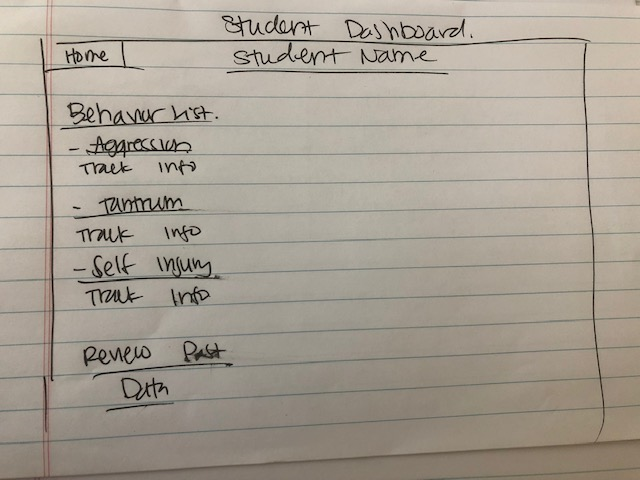 Student Dashboard.
Home
Student Name
Behavior List.
- Aggression
Track Info
- Tantrum
Track Info
- Self Injury
Track Info
Review Past
Data